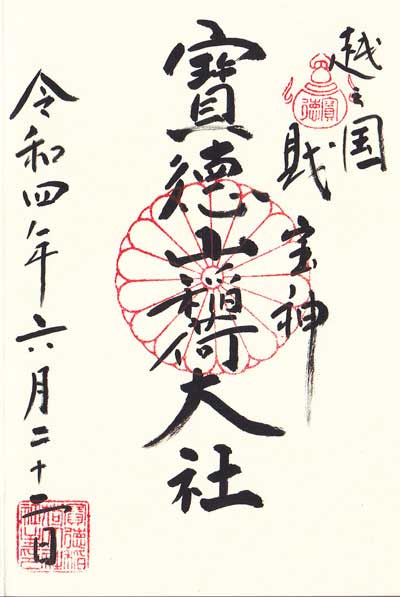 越之国
財宝神
寶徳
寶徳山稲荷大社
令和四年六月二十二日